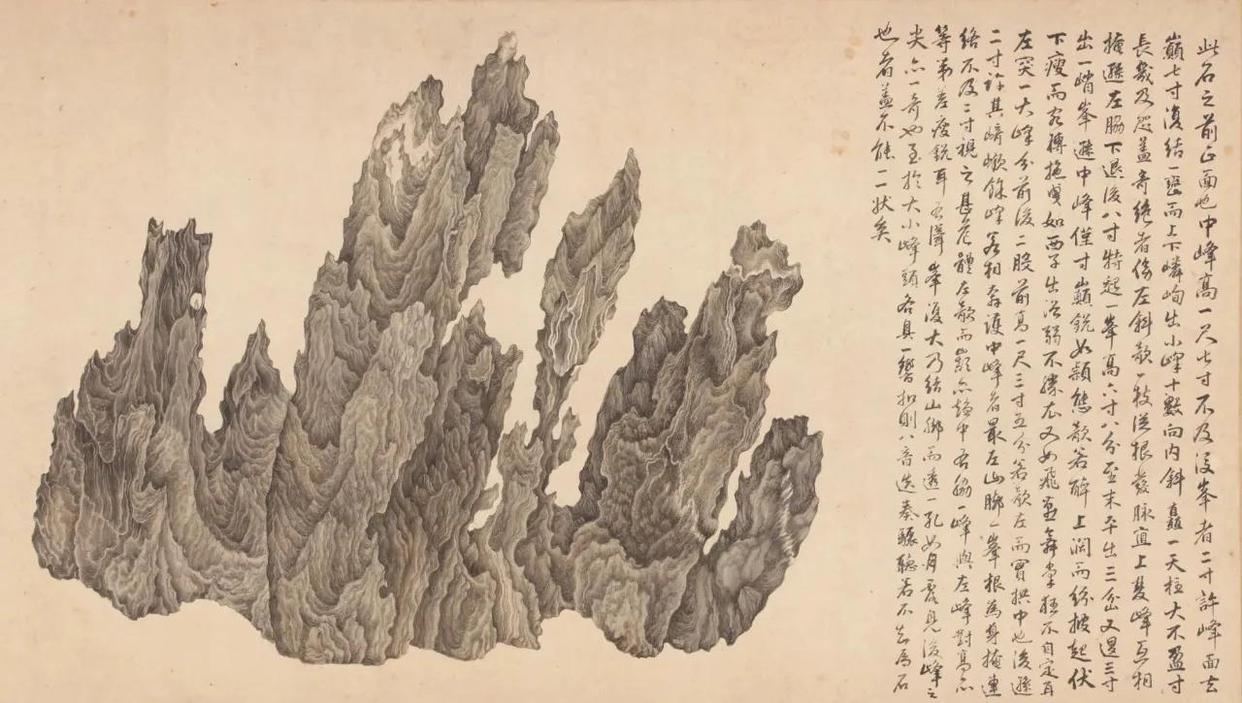 此石之前正面也中峰高一尺七寸不及後峯者二寸許峰面去
巔七寸復結一巒而上下嶙峋出小峰十數向内斜矗一天柱大不盈寸
長幾及咫蓋奇絶者傍左斜欹一枝從根發脉直上雙峰互相
掩遜左脇下退後八寸特起一峯高六寸八分至末平出三分又退三寸
出一峭峯遜中峰僅寸巔銳如穎態欹若醉上闊而紛披起伏
下瘦而宛轉拖曳如西子出浴弱不勝衣又如飛燕舞掌狂不自定耳
左突一大峰分前後二股前高一尺三寸五分若欹左而實拱中也後遜
二寸許其﨑嶔餘峰若相奔護中峰者最左山脚一峯根為身掩連
絡不及二寸視之甚危體左欹而巔亦趨中右脇一峰與左峰對高亦
等第差瘦銳耳右擇峯復大乃結山脚而透一孔如月露見後峰之
尖亦一奇也至於大小峰頭各具一響扣則八音迭奏聽聽若不去為石
也者蓋不能一一狀矣